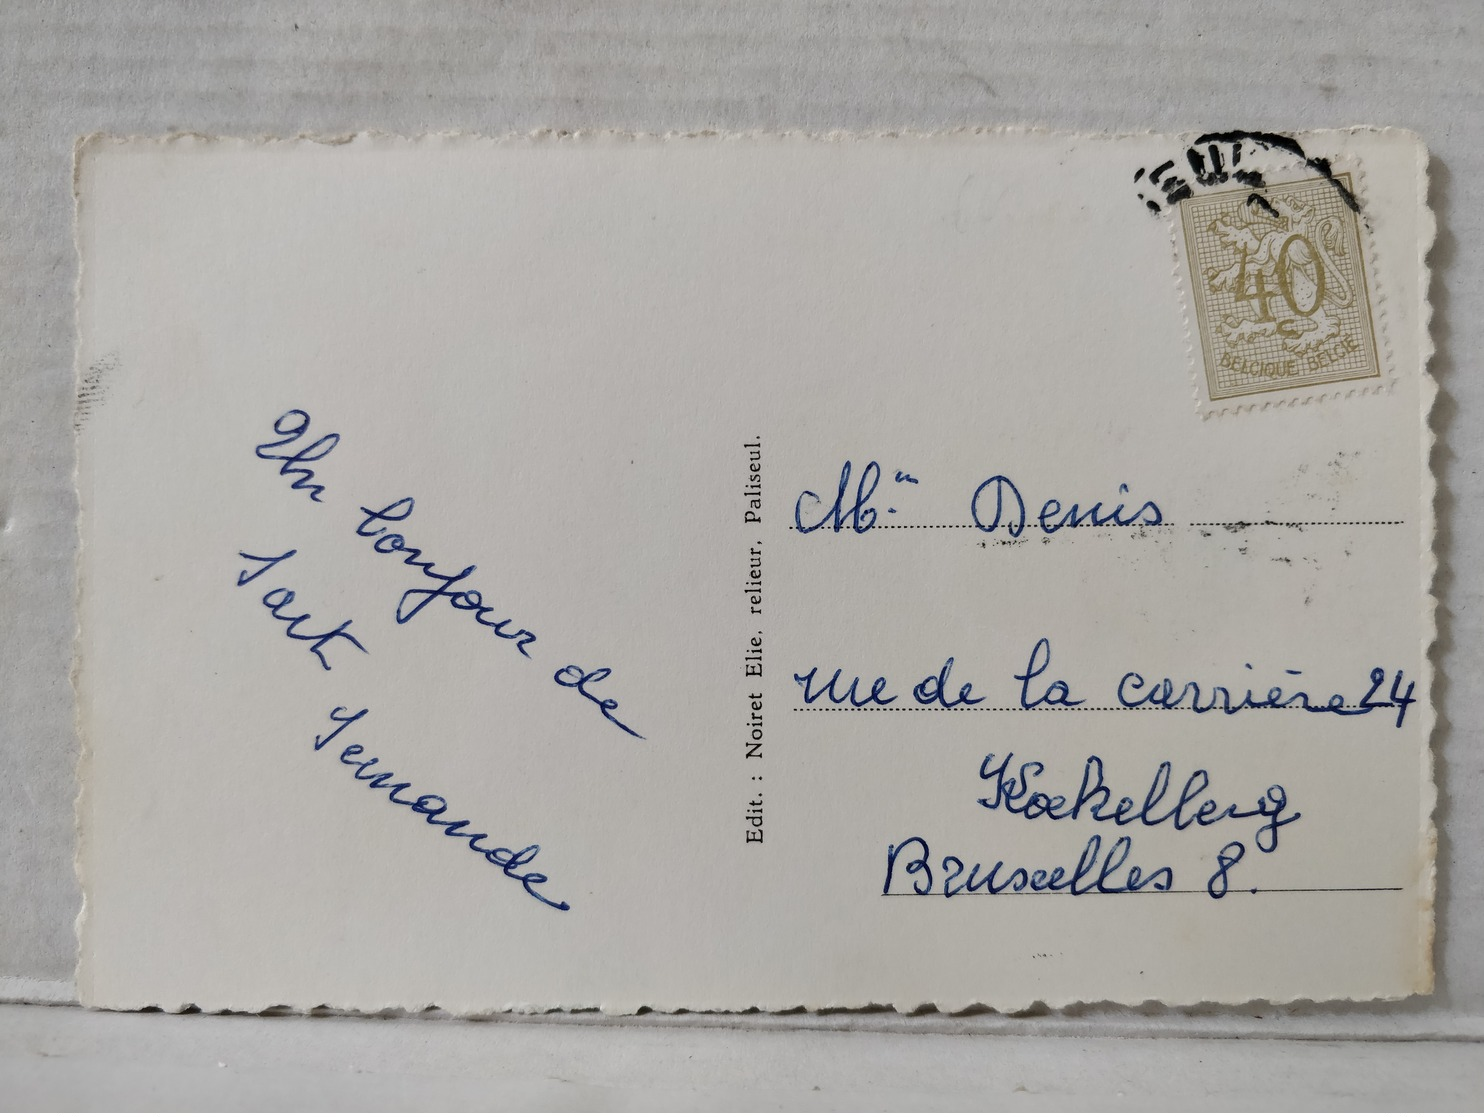 Un bonjour de
Sart
Fernande
Edit. : Noiret Elie, relieur, Paliseul.
40
BELGIQUE BELGIË
Denis
rue de la carrière 24
Koekelberg
Bruxelles 8.